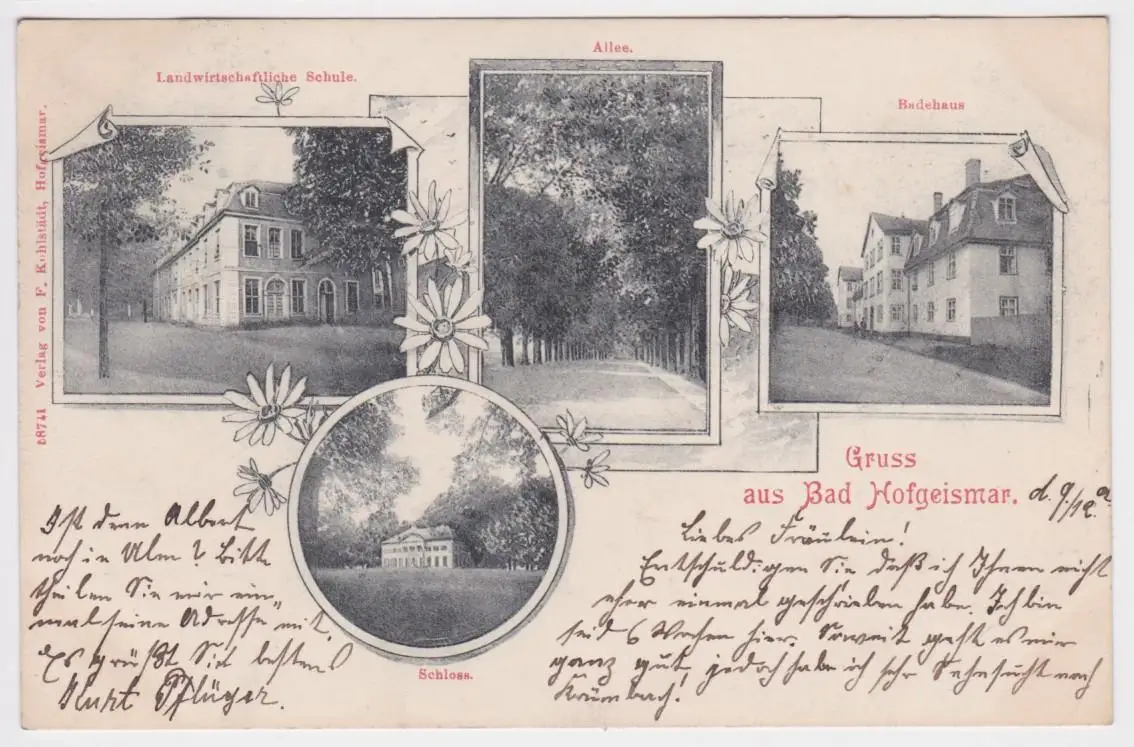 Allee.
Landwirtschaftliche Schule.
Badehaus
58711 Verlag von F. Kohlstädt, Hofgeismar.
Gruss
aus Bad Hofgeismar.
d. 9/12.
Liebes Fräulein!
Entschuldigen Sie daß ich Ihnen nicht
eher einmal geschrieben habe. Ich bin
seid 6 Wochen hier. Soweit geht es mir
ganz gut, jedoch habe ich sehr Sehnsucht nach
Krumbach!
Ist denn Albert
noch in Ulm? Bitte
theilen Sie mir ein-
mal seine Adresse mit.
Es grüßt Sie bestens
Kurt Pflüger.
Schloss.